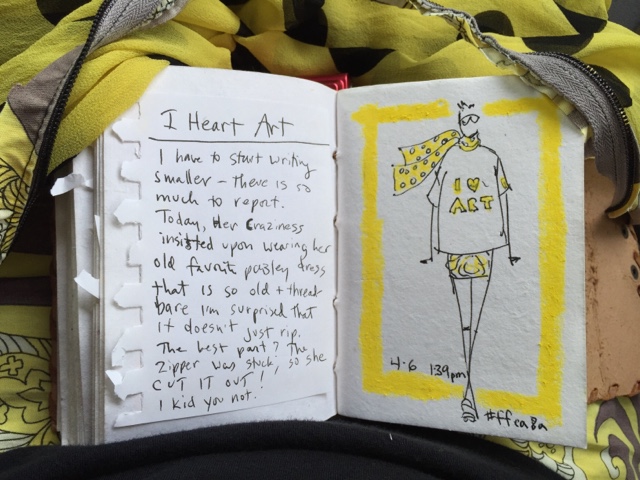 I Heart Art
I have to start writing
smaller – there is so
much to report.
Today, Her Craziness
insisted upon wearing her
old favorite paisley dress
that is so old + thread
bare I'm surprised that
it doesn't just rip.
The best part? The
zipper was stuck, so she
CUT IT OUT!
I kid you not.
I ♡
ART
4.6 139pm
#ffca8a